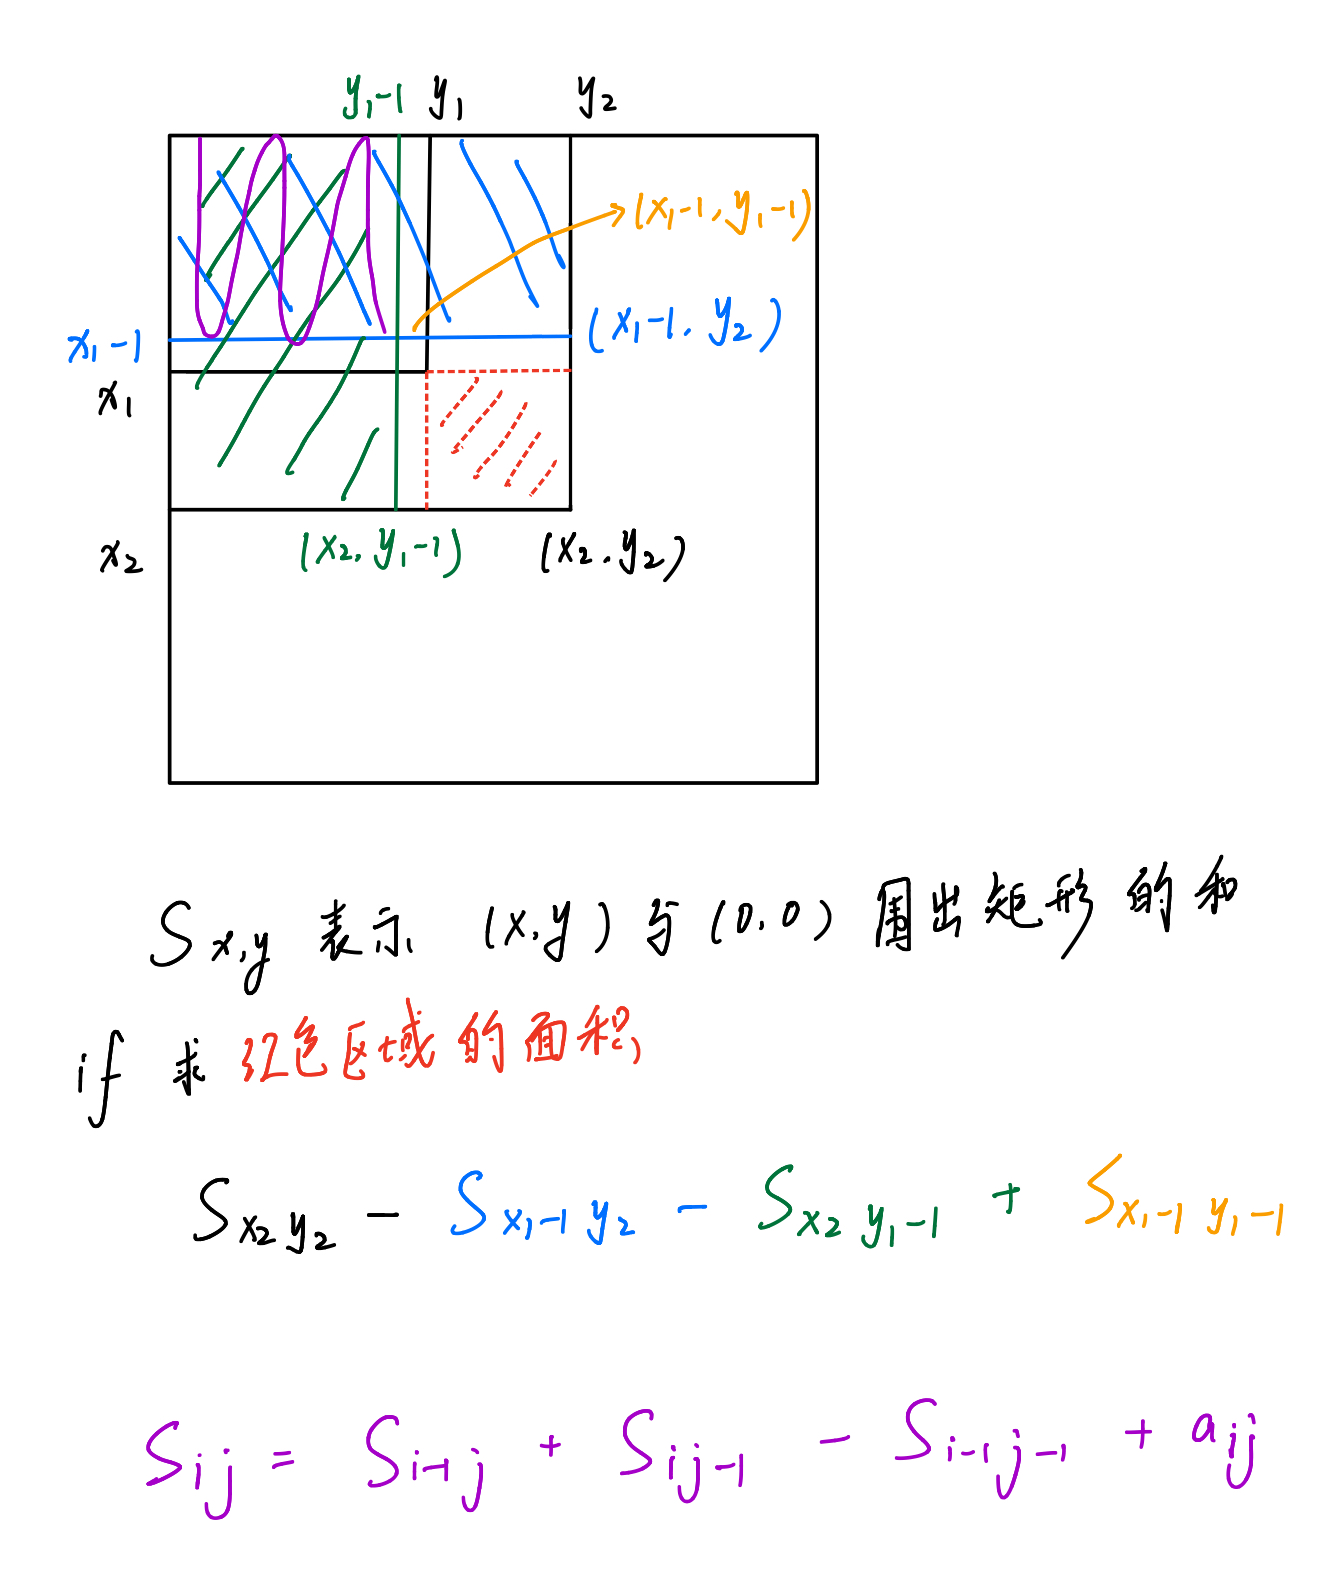 y₁-1 y₁ y₂
(x₁-1, y₁-1)
x₁-1 (x₁-1, y₂)
x₁
(x₂, y₁-1) (x₂, y₂)
x₂
Sx,y 表示 (x,y) 与 (0,0) 围出矩形的和
if 求 红色区域的面积
Sx₂y₂ - Sx₁-1 y₂ - Sx₂ y₁-1 + Sx₁-1 y₁-1
Sij = Si-1j + Sij-1 - Si-1j-1 + aij